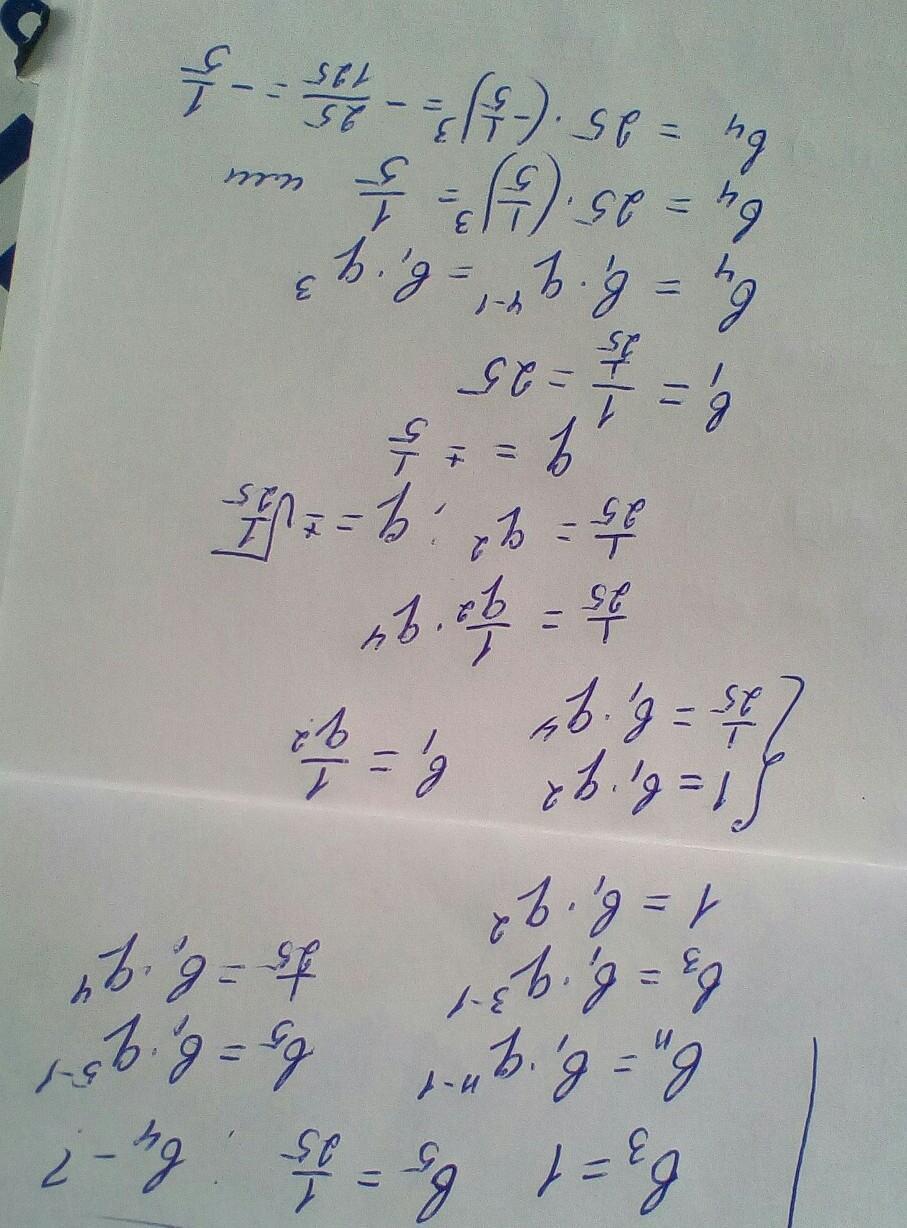 b₃ = 1   b₅ = 1/25 ,   b₄ - ?
bₙ = b₁ · qⁿ⁻¹   b₅ = b₁ · q⁵⁻¹
b₃ = b₁ · q³⁻¹   1/25 = b₁ · q⁴
1 = b₁ · q²
{ 1 = b₁ · q²   b₁ = 1/q²
1/25 = b₁ · q⁴
1/25 = 1/q² · q⁴
1/25 = q² ; q = ± √(1/25)
q = ± 1/5
b₁ = 1/(1/25) = 25
b₄ = b₁ · q⁴⁻¹ = b₁ · q³
b₄ = 25 · (1/5)³ = 1/5 или
b₄ = 25 · (-1/5)³ = - 25/125 = - 1/5